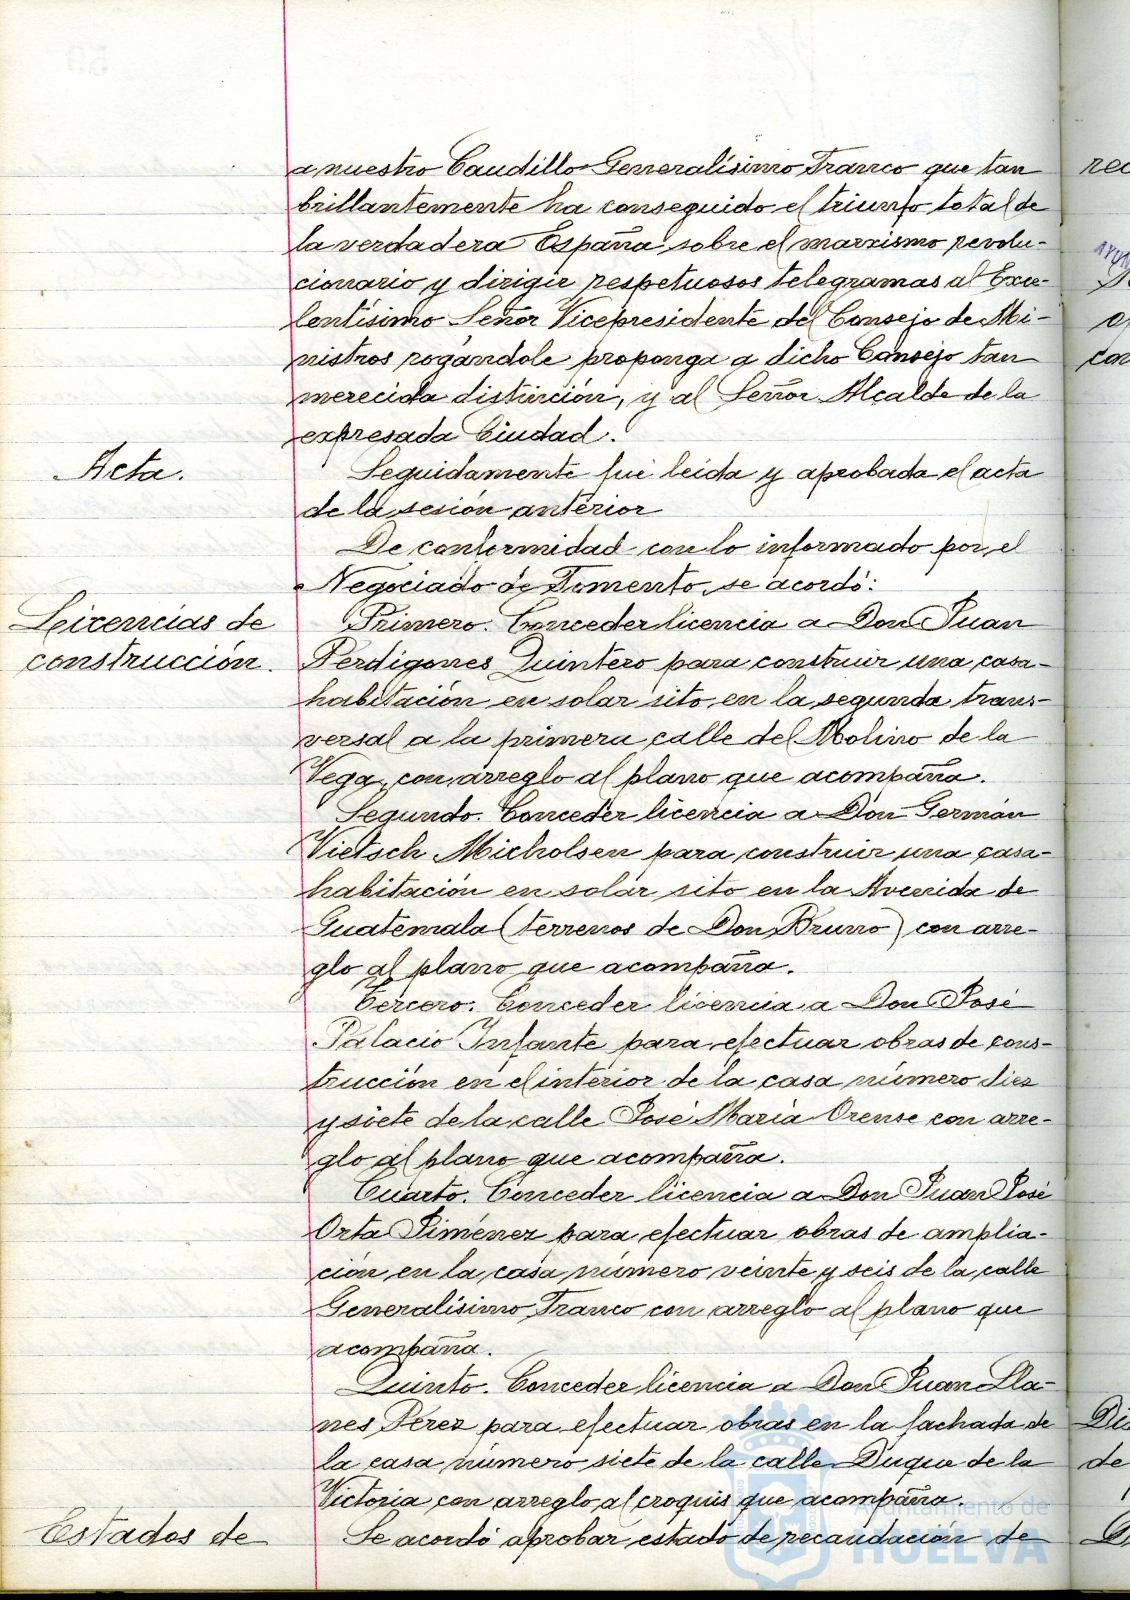 a nuestro Caudillo Generalísimo Franco que tan
brillantemente ha conseguido el triunfo total de
la verdadera España sobre el marxismo revolu-
cionario y dirigir respetuosos telegramas al Exce-
lentísimo Señor Vicepresidente del Consejo de Mi-
nistros rogándole proponga a dicho Consejo tan
merecida distinción, y al Señor Alcalde de la
expresada Ciudad.
Acta.
Seguidamente fué leida y aprobada el acta
de la sesión anterior
De conformidad con lo informado por el
Negociado de Fomento, se acordó:
Licencias de
construcción.
Primero. Conceder licencia a Don Juan
Perdigones Quintero para construir una casa-
habitación en solar sito en la segunda trans-
versal a la primera calle del Molino de la
Vega, con arreglo al plano que acompaña.
Segundo. Conceder licencia a Don Germán
Vietsch Micholsen para construir una casa-
habitación en solar sito en la Avenida de
Guatemala (terrenos de Don Bruno) con arre-
glo al plano que acompaña.
Tercero. Conceder licencia a Don José
Palacio Infante para efectuar obras de cons-
trucción en el interior de la casa número diez
y siete de la calle José María Orense con arre-
glo al plano que acompaña.
Cuarto. Conceder licencia a Don Juan José
Orta Jiménez para efectuar obras de amplia-
ción en la casa número veinte y seis de la calle
Generalísimo Franco con arreglo al plano que
acompaña.
Quinto. Conceder licencia a Don Juan Lla-
nes Pérez para efectuar obras en la fachada de
la casa número siete de la calle Duque de la
Victoria con arreglo al croquis que acompaña.
Estados de
Se acordó aprobar estado de recaudación de
Ayuntamiento de
HUELVA